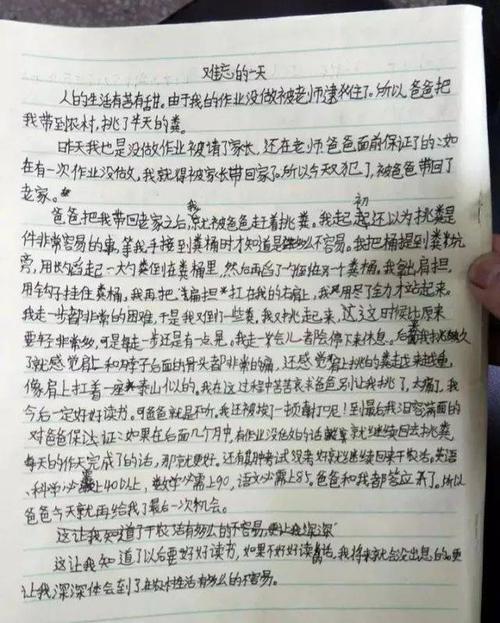 难忘的一天
人的生活有苦有甜。由于我的作业没做被老师逮住了。所以爸爸把
我带到农村，挑了半天的粪。
昨天我也是没做作业被请了家长，还在老师爸爸面前保证了的：如
在有一次作业没做，我就得被家长带回家了。所以今天又犯了，被爸爸带回了
老家。
爸爸把我带回老家之后，我就被爸爸赶着挑粪。我起初还以为挑粪是
件非常容易的事，等我手接到粪桶时才知道是多么不容易。我把桶提到粪坑
旁，用长勺舀起一大勺粪倒在粪桶里，然后再舀了勺在另一个粪桶。我拿出肩担，
用钩子挂住粪桶。我再把扁担扛在我的右肩上，我用尽了全力才站起来。
我走一步都非常的困难，于是我又倒了一些粪。我又挑走起来，这次这时候比原来
要轻非常多，可是每走一步还是有一点晃。我走一会儿都会停下来休息。后我挑越久
了就感觉肩上和脖子后面的骨头都非常的痛，还感觉肩上挑的粪走来越重，
像肩上扛着一座泰山似的。我在这过程中苦苦哀求爸爸别让我挑了，太痛了，我
今后一定好好读书。可爸爸就是不听，我还被挨了一顿毒打呢！到最后我泪容满面的
对爸爸保证：如果在后面几个月中，有作业没做好的话就继续回去挑粪，
每天的作天完成了的话，那就更好。还有期中考试没考好就继续回来干农活。英语
、科学必需上40以上，数学必需上90，语文必需上85。爸爸和我都答应了。所以
爸爸今天就再给我了最后一次机会。
这让我知道了干农活有多么的不容易，更让我深深
这让我知道了以后要好好读书，如果不好好读书话，我将来就会没出息的。更
让我深深体会到了农村生活有多么的不容易。